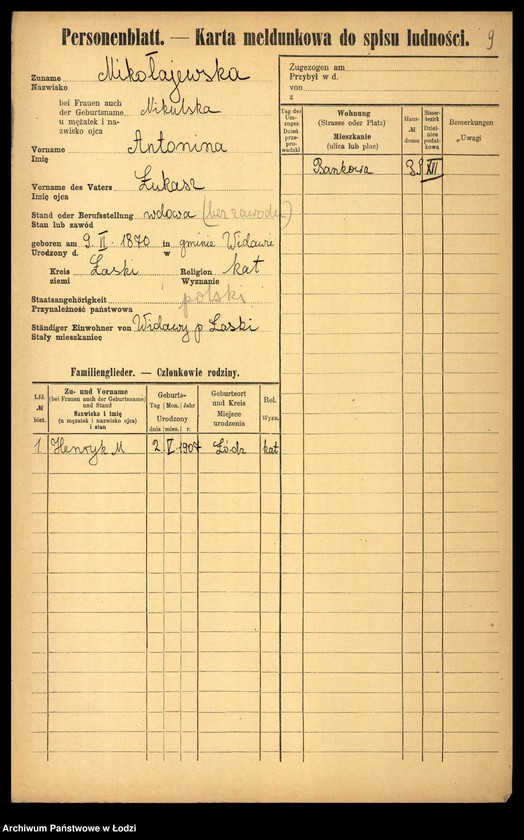 Personenblatt. — Karta meldunkowa do spisu ludności. 9
Zuname Mikołajewska
Nazwisko
bei Frauen auch
der Geburtsname Nikulska
u mężatek i na-
zwisko ojca
Vorname Antonina
Imię
Vorname des Vaters Łukasz
Imię ojca
Stand oder Berufsstellung wdowa (bez zawodu)
Stan lub zawód
geboren am 9. II. 1870 in gminie Widawie
Urodzony d. w
Kreis Łaski Religion kat
ziemi Wyznanie
Staatsangehörigkeit polski
Przynależność państwowa
Ständiger Einwohner von Widawy p Łaski
Stały mieszkaniec
Familienglieder. — Członkowie rodziny.
Lfd. № bież.
Zu- und Vorname
(bei Frauen auch der Geburtsname)
und Stand
Nazwisko i imię
(u mężatek i nazwisko ojca)
i stan
Geburts-
Tag Mon. Jahr
Urodzony
dnia mies. r.
Geburtsort
und Kreis
Miejsce
urodzenia
Rel.
Wyzn.
1 Henryk M 2 V 1907 Łódz kat
Zugezogen am
Przybył w d.
von
z
Tag des
Um-
zuges
Dzień
prze-
pro-
wadzki
Wohnung
(Strasse oder Platz)
Mieszkanie
(ulica lub plac)
Haus-
№
domu
Steuer-
bezirk
Dziel-
nica
podat-
kowa
Bemerkungen
Uwagi
Bankowa XII
Archiwum Państwowe w Łodzi